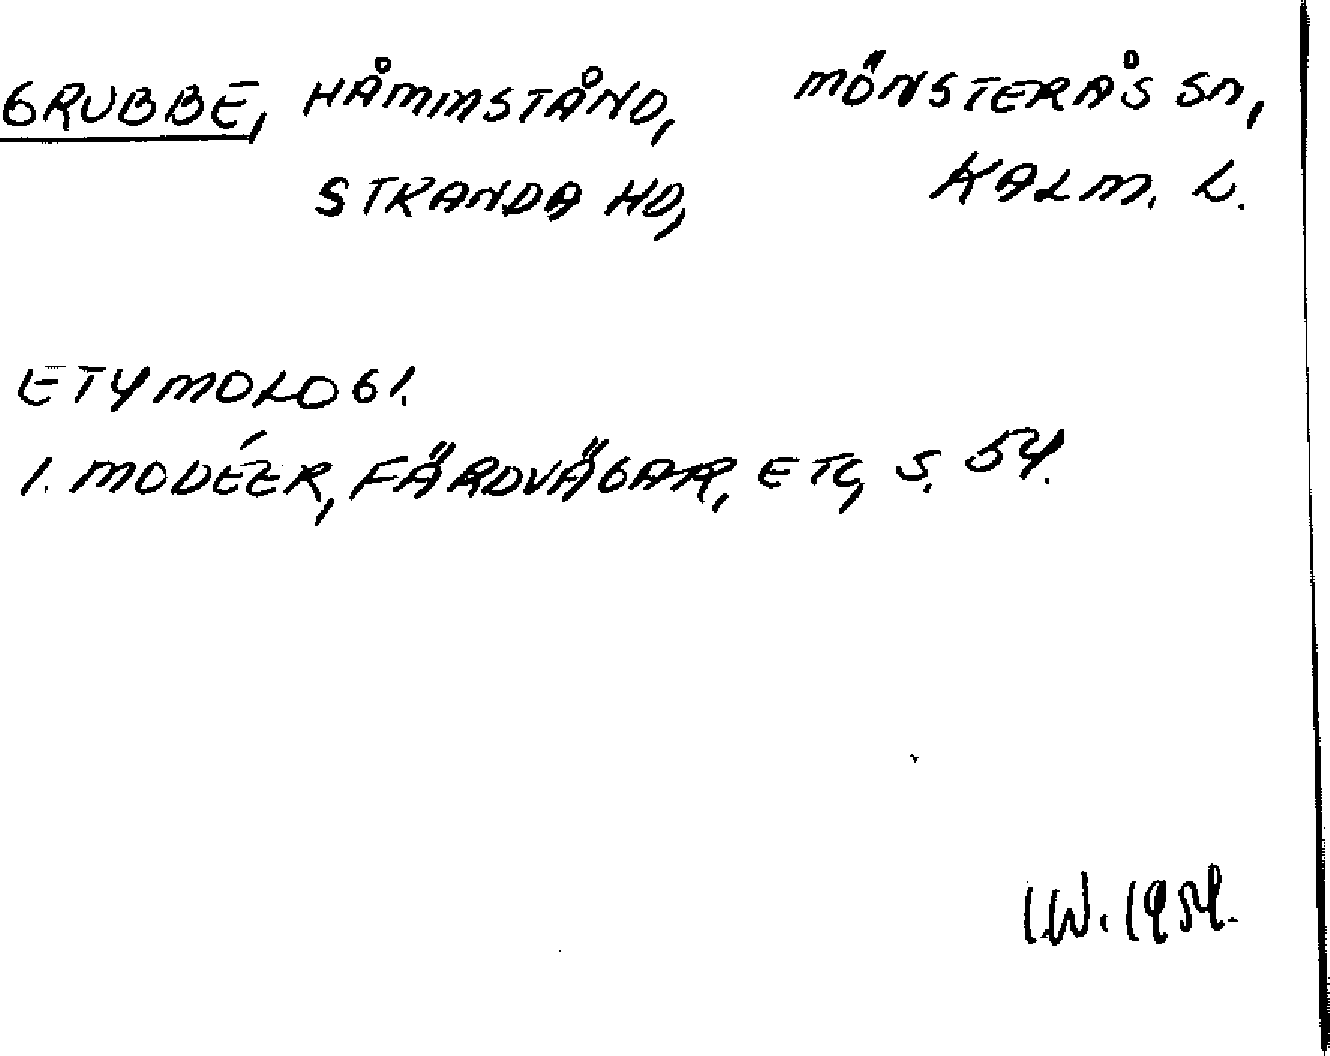 GRUBBE, HÅMMSTÅND, MÖNSTERÅS SN,
STRANDA HD, KALM. L.
ETYMOLOGI.
I. MODÉER, FÄRDVÄGAR, ETC, S. 54.
I.W. 1954.